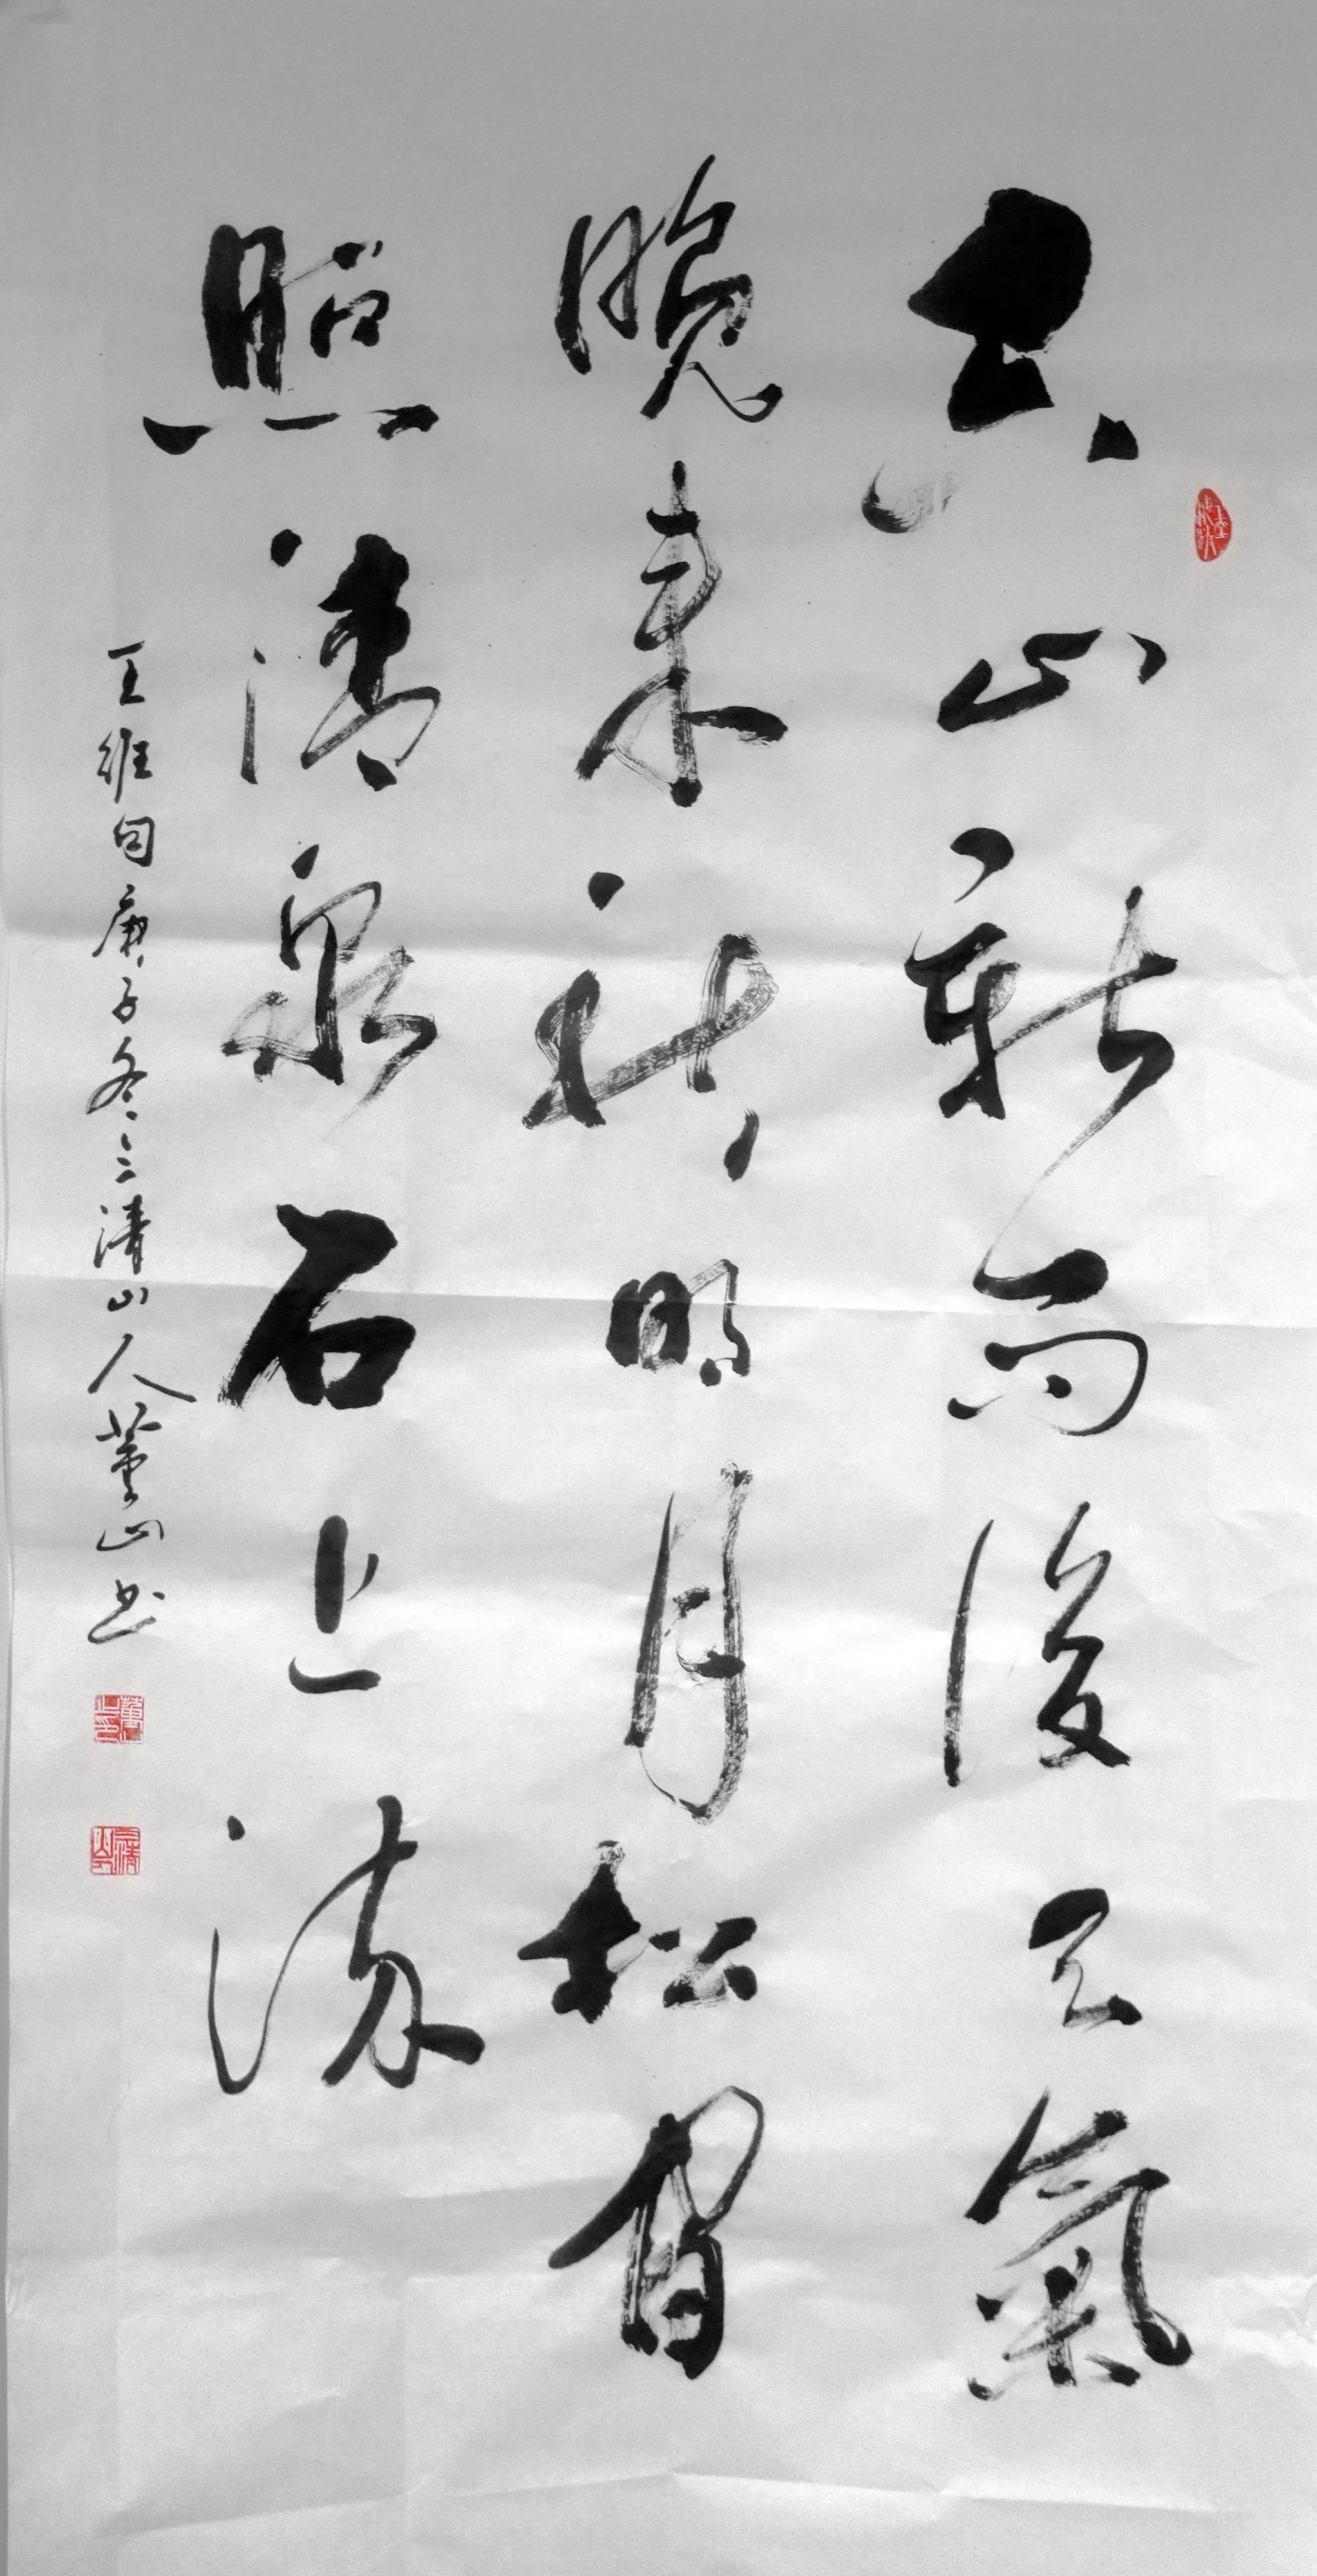 空山新雨後天氣
晚来秋明月松間
照清泉石上流
王維句庚子冬三清山人董山书